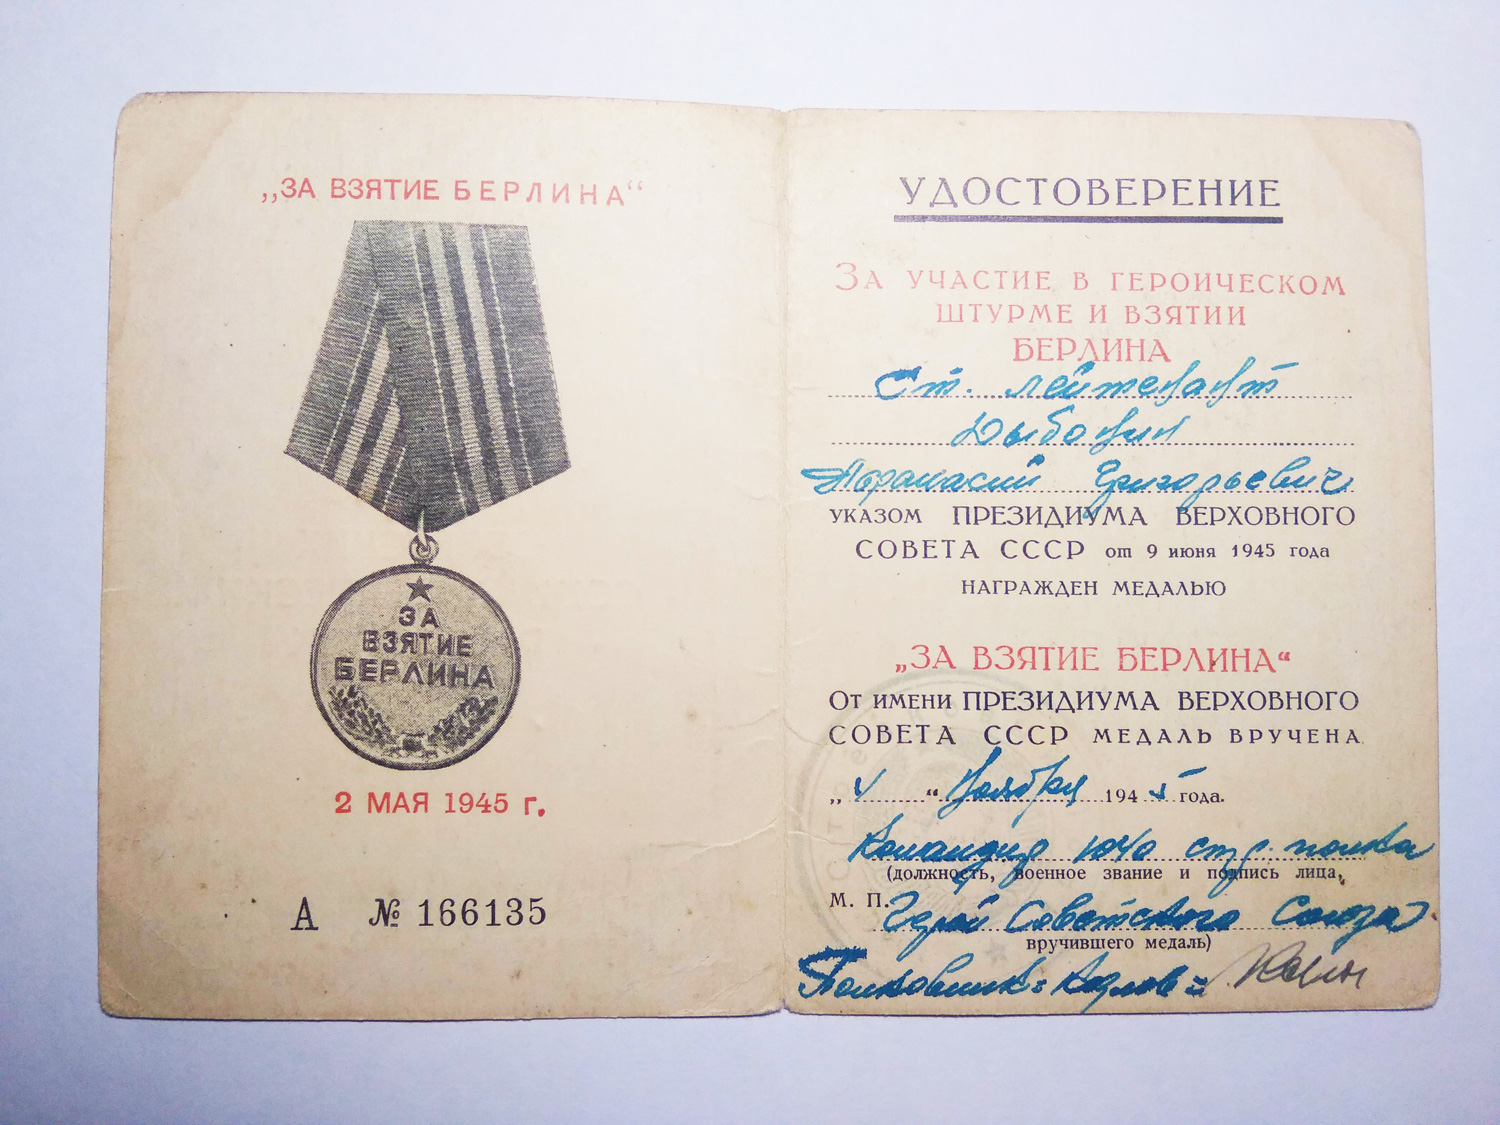 „ЗА ВЗЯТИЕ БЕРЛИНА“
ЗА
ВЗЯТИЕ
БЕРЛИНА
2 МАЯ 1945 г.
А № 166135
УДОСТОВЕРЕНИЕ
ЗА УЧАСТИЕ В ГЕРОИЧЕСКОМ
ШТУРМЕ И ВЗЯТИИ
БЕРЛИНА
Ст. лейтенант
Афанасий Григорьевич
УКАЗОМ ПРЕЗИДИУМА ВЕРХОВНОГО
СОВЕТА СССР от 9 июня 1945 года
НАГРАЖДЕН МЕДАЛЬЮ
„ЗА ВЗЯТИЕ БЕРЛИНА“
ОТ ИМЕНИ ПРЕЗИДИУМА ВЕРХОВНОГО
СОВЕТА СССР МЕДАЛЬ ВРУЧЕНА
„ “ ноября 1945 года.
Командир 1040 стр. полка
(должность, военное звание и подпись лица,
М. П. Герой Советского Союза
вручившего медаль)
Полковник = Козлов =